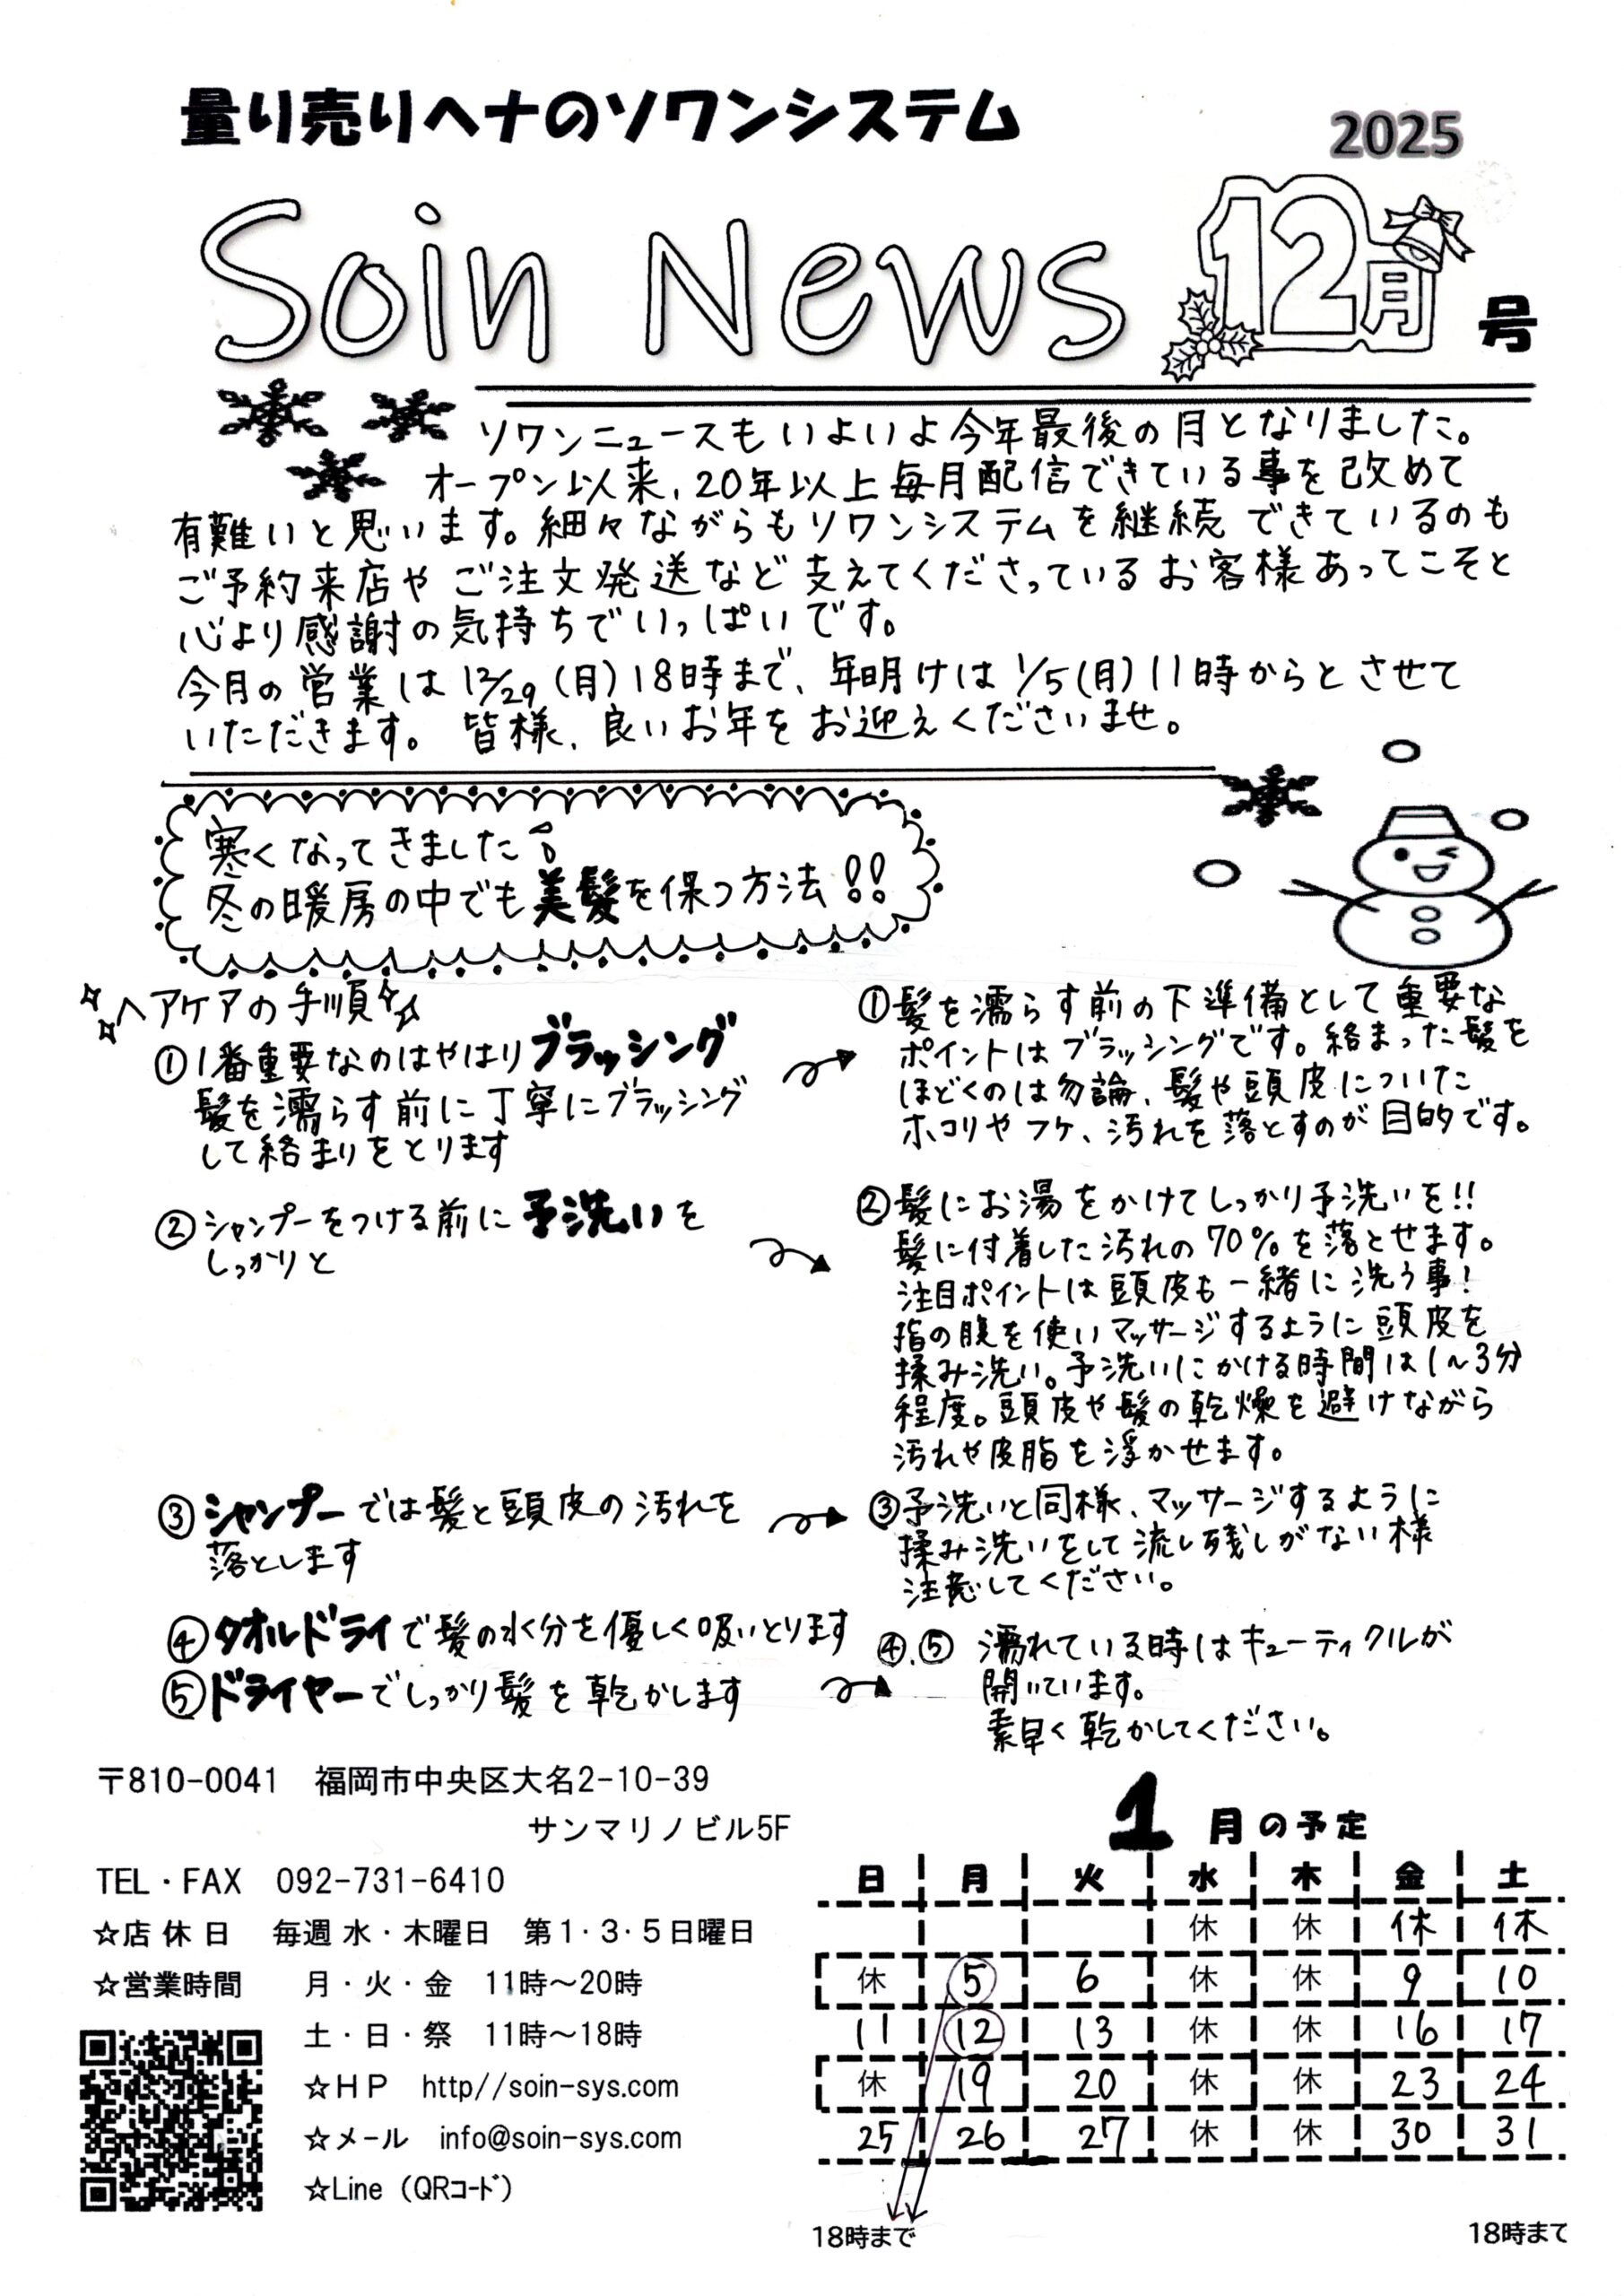 量り売りヘナのソワンシステム
2025
Soin News 12月号
ソワンニュースもいよいよ今年最後の月となりました。
オープン以来、20年以上毎月配信できている事を改めて
有難いと思います。細々ながらもソワンシステムを継続できているのも
ご予約来店やご注文発送など支えてくださっているお客様あってこそと
心より感謝の気持ちでいっぱいです。
今月の営業は12/29(月)18時まで、年明けは1/5(月)11時からとさせて
いただきます。皆様、良いお年をお迎えくださいませ。
寒くなってきました
冬の暖房の中でも美髪を保つ方法!!
ヘアケアの手順
①1番重要なのはやはりブラッシング
髪を濡らす前に丁寧にブラッシング
して絡まりをとります
①髪を濡らす前の下準備として重要な
ポイントはブラッシングです。絡まった髪を
ほどくのは勿論、髪や頭皮についた
ホコリやフケ、汚れを落とすのが目的です。
②シャンプーをつける前に予洗いを
しっかりと
②髪にお湯をかけてしっかり予洗いを!!
髪に付着した汚れの70%を落とせます。
注目ポイントは頭皮も一緒に洗う事!
指の腹を使いマッサージするように頭皮を
揉み洗い。予洗いにかける時間は1~3分
程度。頭皮や髪の乾燥を避けながら
汚れや皮脂を浮かせます。
③シャンプーでは髪と頭皮の汚れを
落とします
③予洗いと同様、マッサージするように
揉み洗いをして流し残しがない様
注意してください。
④タオルドライで髪の水分を優しく吸いとります
⑤ドライヤーでしっかり髪を乾かします
④.⑤ 濡れている時はキューティクルが
開いています。
素早く乾かしてください。
〒810-0041 福岡市中央区大名2-10-39
サンマリノビル5F
TEL・FAX 092-731-6410
☆店休日 毎週 水・木曜日 第1・3・5日曜日
☆営業時間 月・火・金 11時～20時
土・日・祭 11時～18時
☆HP http//soin-sys.com
☆メール info@soin-sys.com
☆Line（QRコード）
1月の予定
日 月 火 水 木 金 土
休 休 休 休
休 5 6 休 休 9 10
11 12 13 休 休 16 17
休 19 20 休 休 23 24
25 26 27 休 休 30 31
18時まで
18時まて